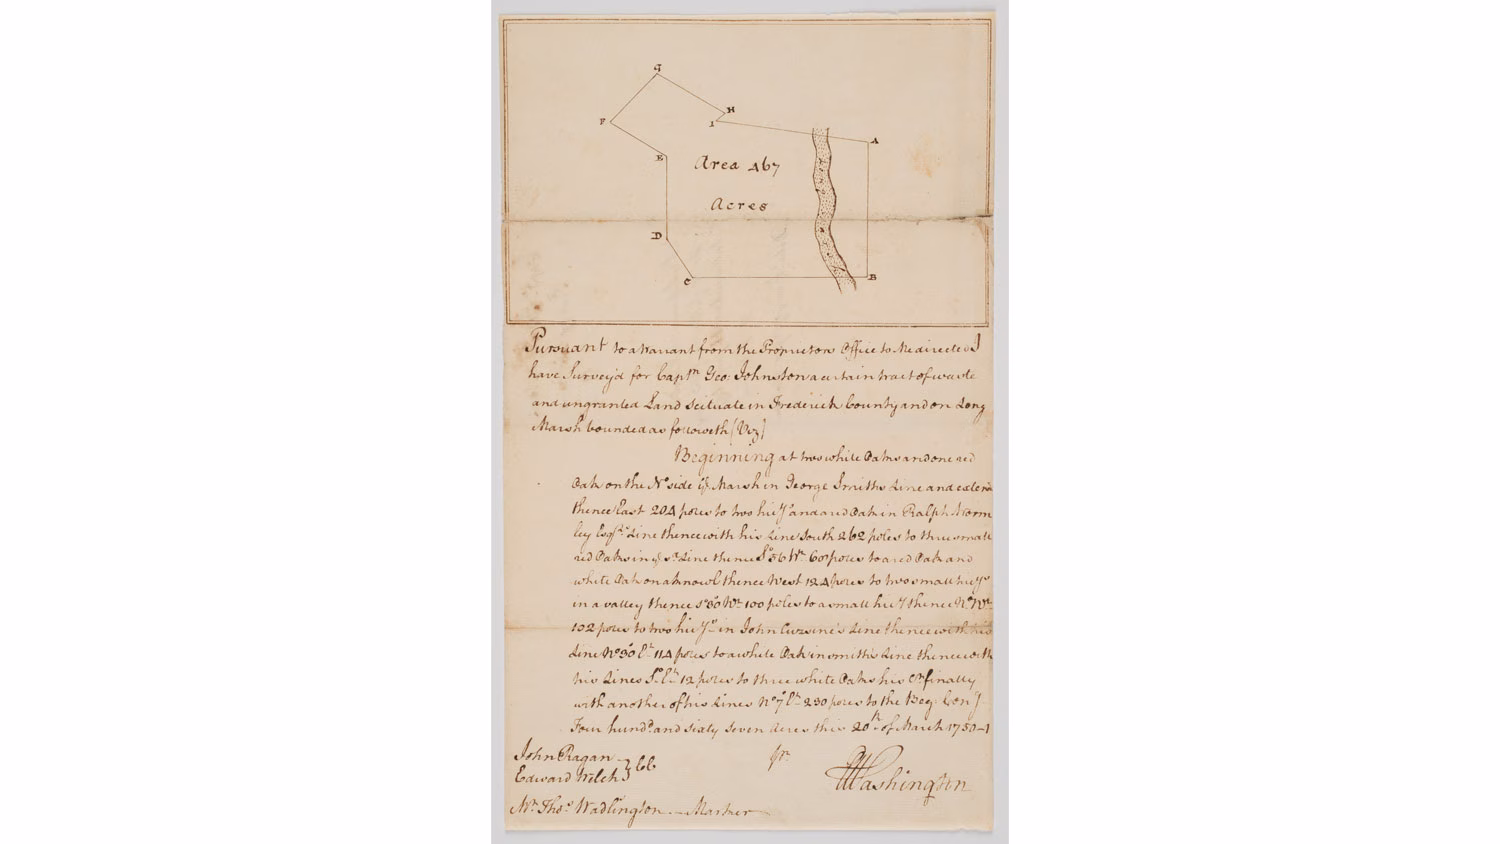 G
H
F
I
A
E
Area 467
Acres
D
C
B
Pursuant to a Warrant from the Proprietors Office to Me directed I
have Survey'd for Capt.n Geo: Johnston a certain tract of waste
and ungranted Land scituate in Frederick County and on Long
Marsh bounded as followeth (Viz)
Beginning at two white Oaks and one red
Oak on the No side ye Marsh in George Smiths Line and extend
thence East 204 poles to two hicys and a red Oak in Ralph Worm
ley Esqrs. Line thence with his Line South 262 poles to three small
red Oaks in ye sd. Line thence So 36 Wt. 60 poles to a red Oak and
white Oak on a knowl thence West 124 poles to two small hicys
in a valley thence So 60 Wt. 100 poles to a small hicy thence No Wt.
132 poles to two hicys in John Line thence with his
Line No 30 Et. 114 poles to a white Oak in smiths Line thence with
his Lines So Et. 12 poles to three white Oaks his Cr. finally
with another of his Lines No 7 Et. 230 poles to the Beg: Cong
Four hundd. and sixty seven Acres this 20th. of March 1750-1
John Ragan
Edward Welch } CC
pr.
Washington
Mr. Thos. Wadlington — Marker